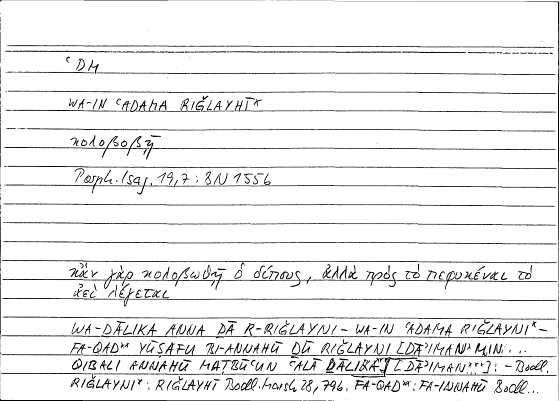 ʿDM
WA-IN ʿADAMA RIǦLAYHĪ*
κολοβοθῇ
Porph. Isag. 19,7 : BN 1556
κἂν γὰρ κολοβωθῇ ὁ δίπους, ἀλλὰ πρὸς τὸ πεφυκέναι τὸ
ἀεὶ λέγεται
WA-ḎĀLIKA ANNA ḎĀ R-RIǦLAYNI – WA-IN ʿADAMA RIǦLAYNI* –
FA-QAD** YŪṢAFU BI-ANNAHŪ ḎŪ RIǦLAYNI [DĀʾIMAN² MIN...
QIBALI ANNAHŪ MAṬBŪʿUN ʿALĀ ḎĀLIKA [DĀʾIMAN***]: – Bodl.
RIǦLAYNI*: RIǦLAYHĪ Bodl. Marsh 28, 796. FA-QAD**: FA-INNAHŪ Bodl...